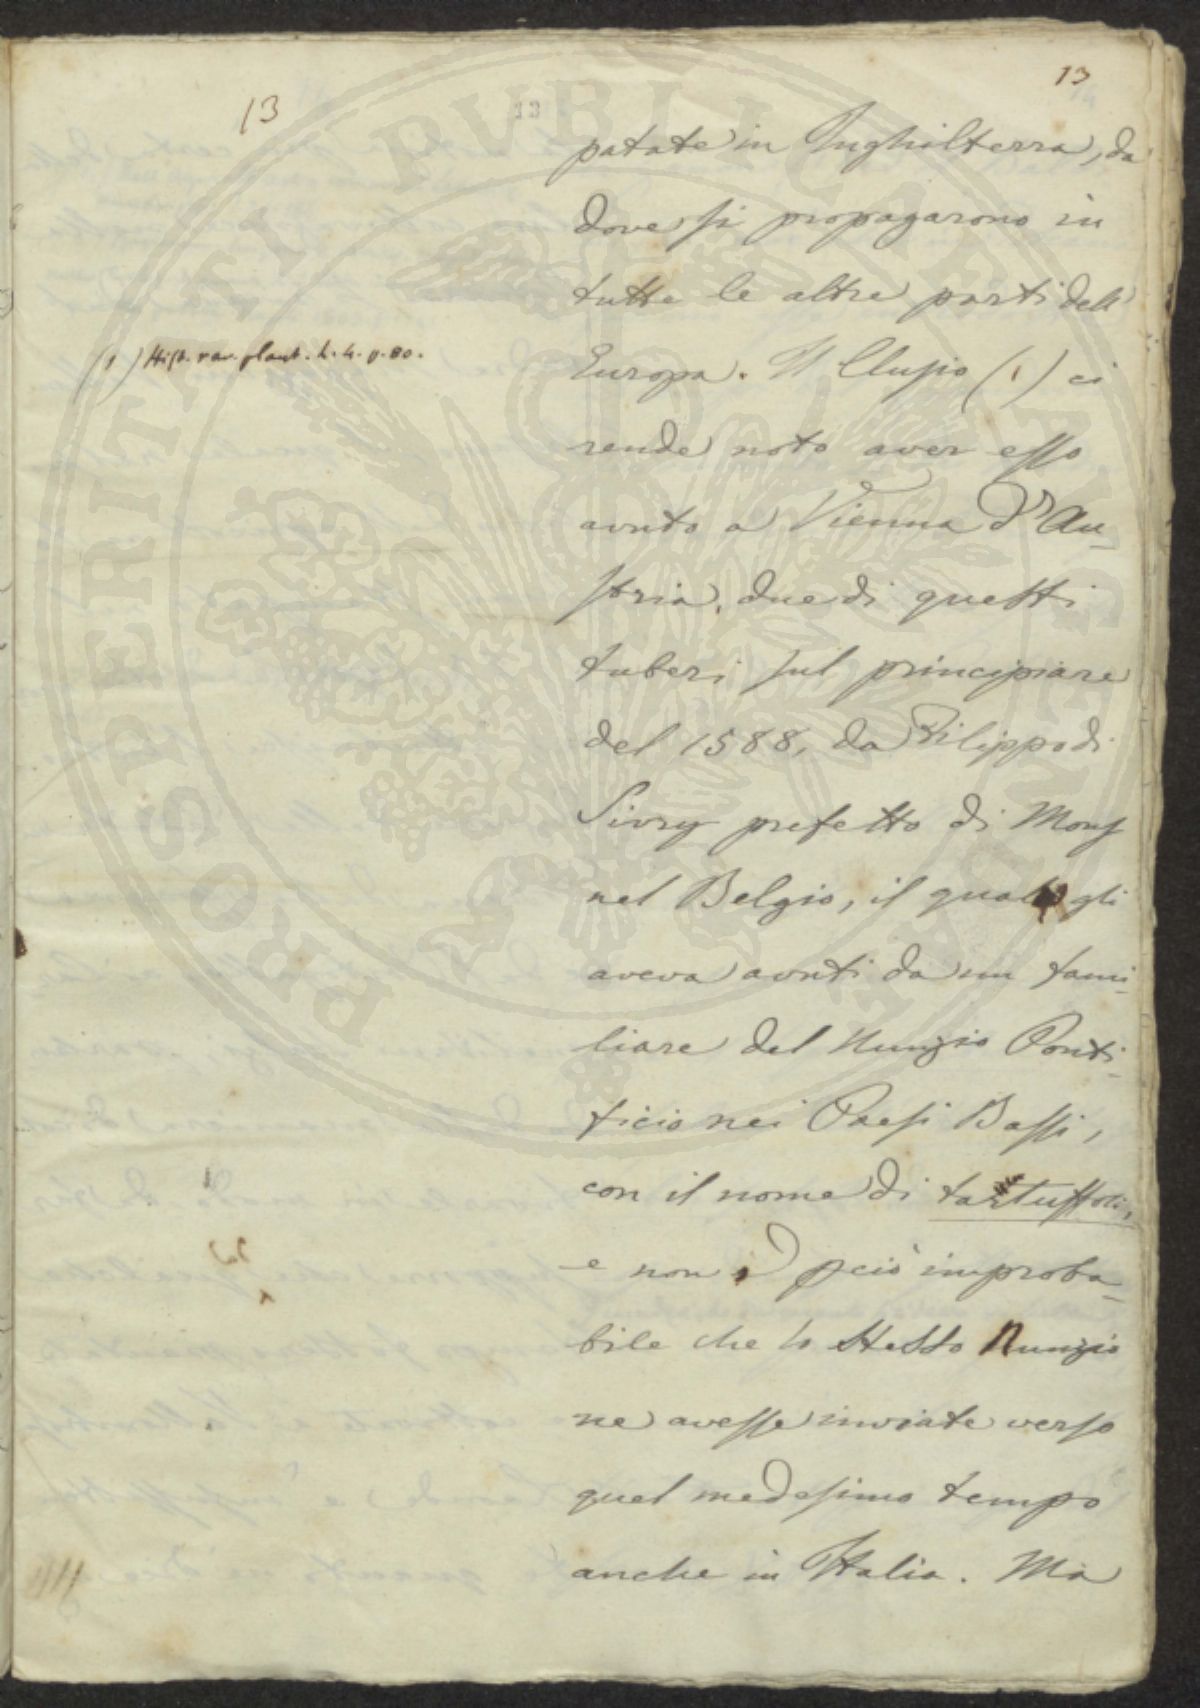 13
13
13
patate in Inghilterra, da
dove si propagarono in
tutte le altre parti dell'
Europa. Il Clusio (1) ci
rende noto aver esso
avuto a Vienna d'Au-
stria, due di questi
tuberi sul principiare
del 1588, da Filippo di
Sivry prefetto di Mons
nel Belgio, il quale gli
aveva avuti da un fami-
liare del Nunzio Ponti-
ficio nei Paesi Bassi,
con il nome di tartuffoli,
e non è pciò improba-
bile che lo stesso Nunzio
ne avesse inviate verso
quel medesimo tempo
anche in Italia. Ma
(1) Hist. rar. plant. L. 4. p. 80.
PROSPERITATI PUBLICAE AUGENDAE